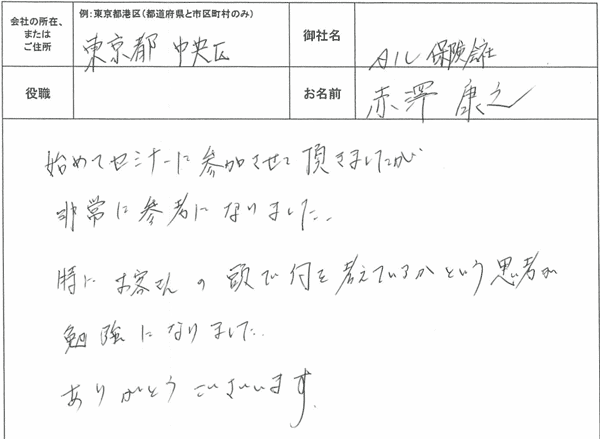 会社の所在、
または
ご住所
例:東京都港区(都道府県と市区町村のみ)
東京都 中央区
御社名
AIU保険会社
役職
お名前
赤澤 康之
始めてセミナーに参加させて頂きましたが
非常に参考になりました。
特に お客さんの頭で何を考えているかという思考が
勉強になりました。
ありがとうございます。